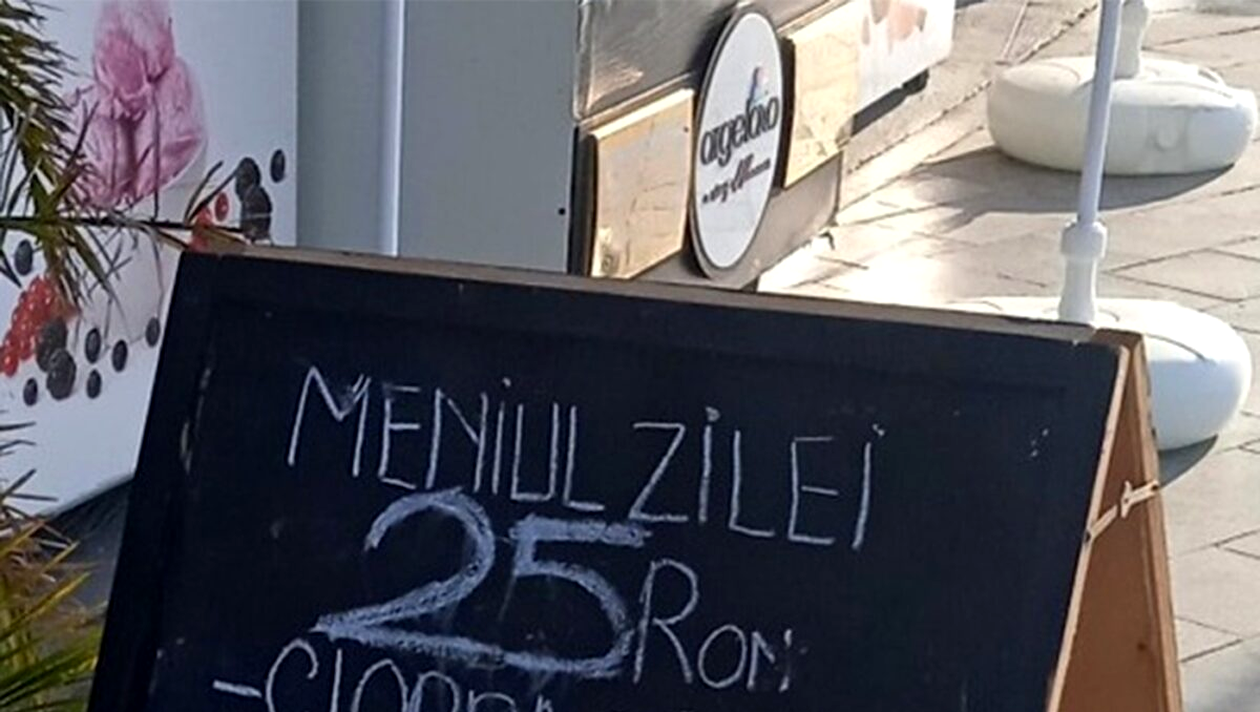 argelato
MENIUL ZILEI
25 RON